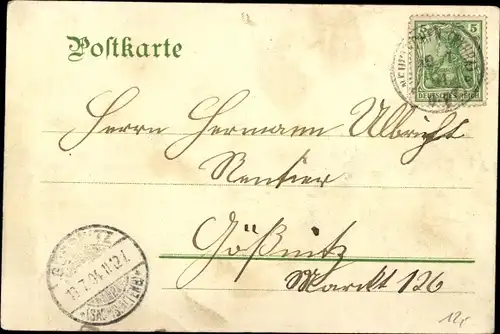 Postkarte
5
DEUTSCHES REICH
Herrn Hermann Ulbricht
Rentier
Gößnitz
Markt 126
GÖSSNITZ
13.7.04.11-12V.
(SACHS.ALTENB.)
12,-